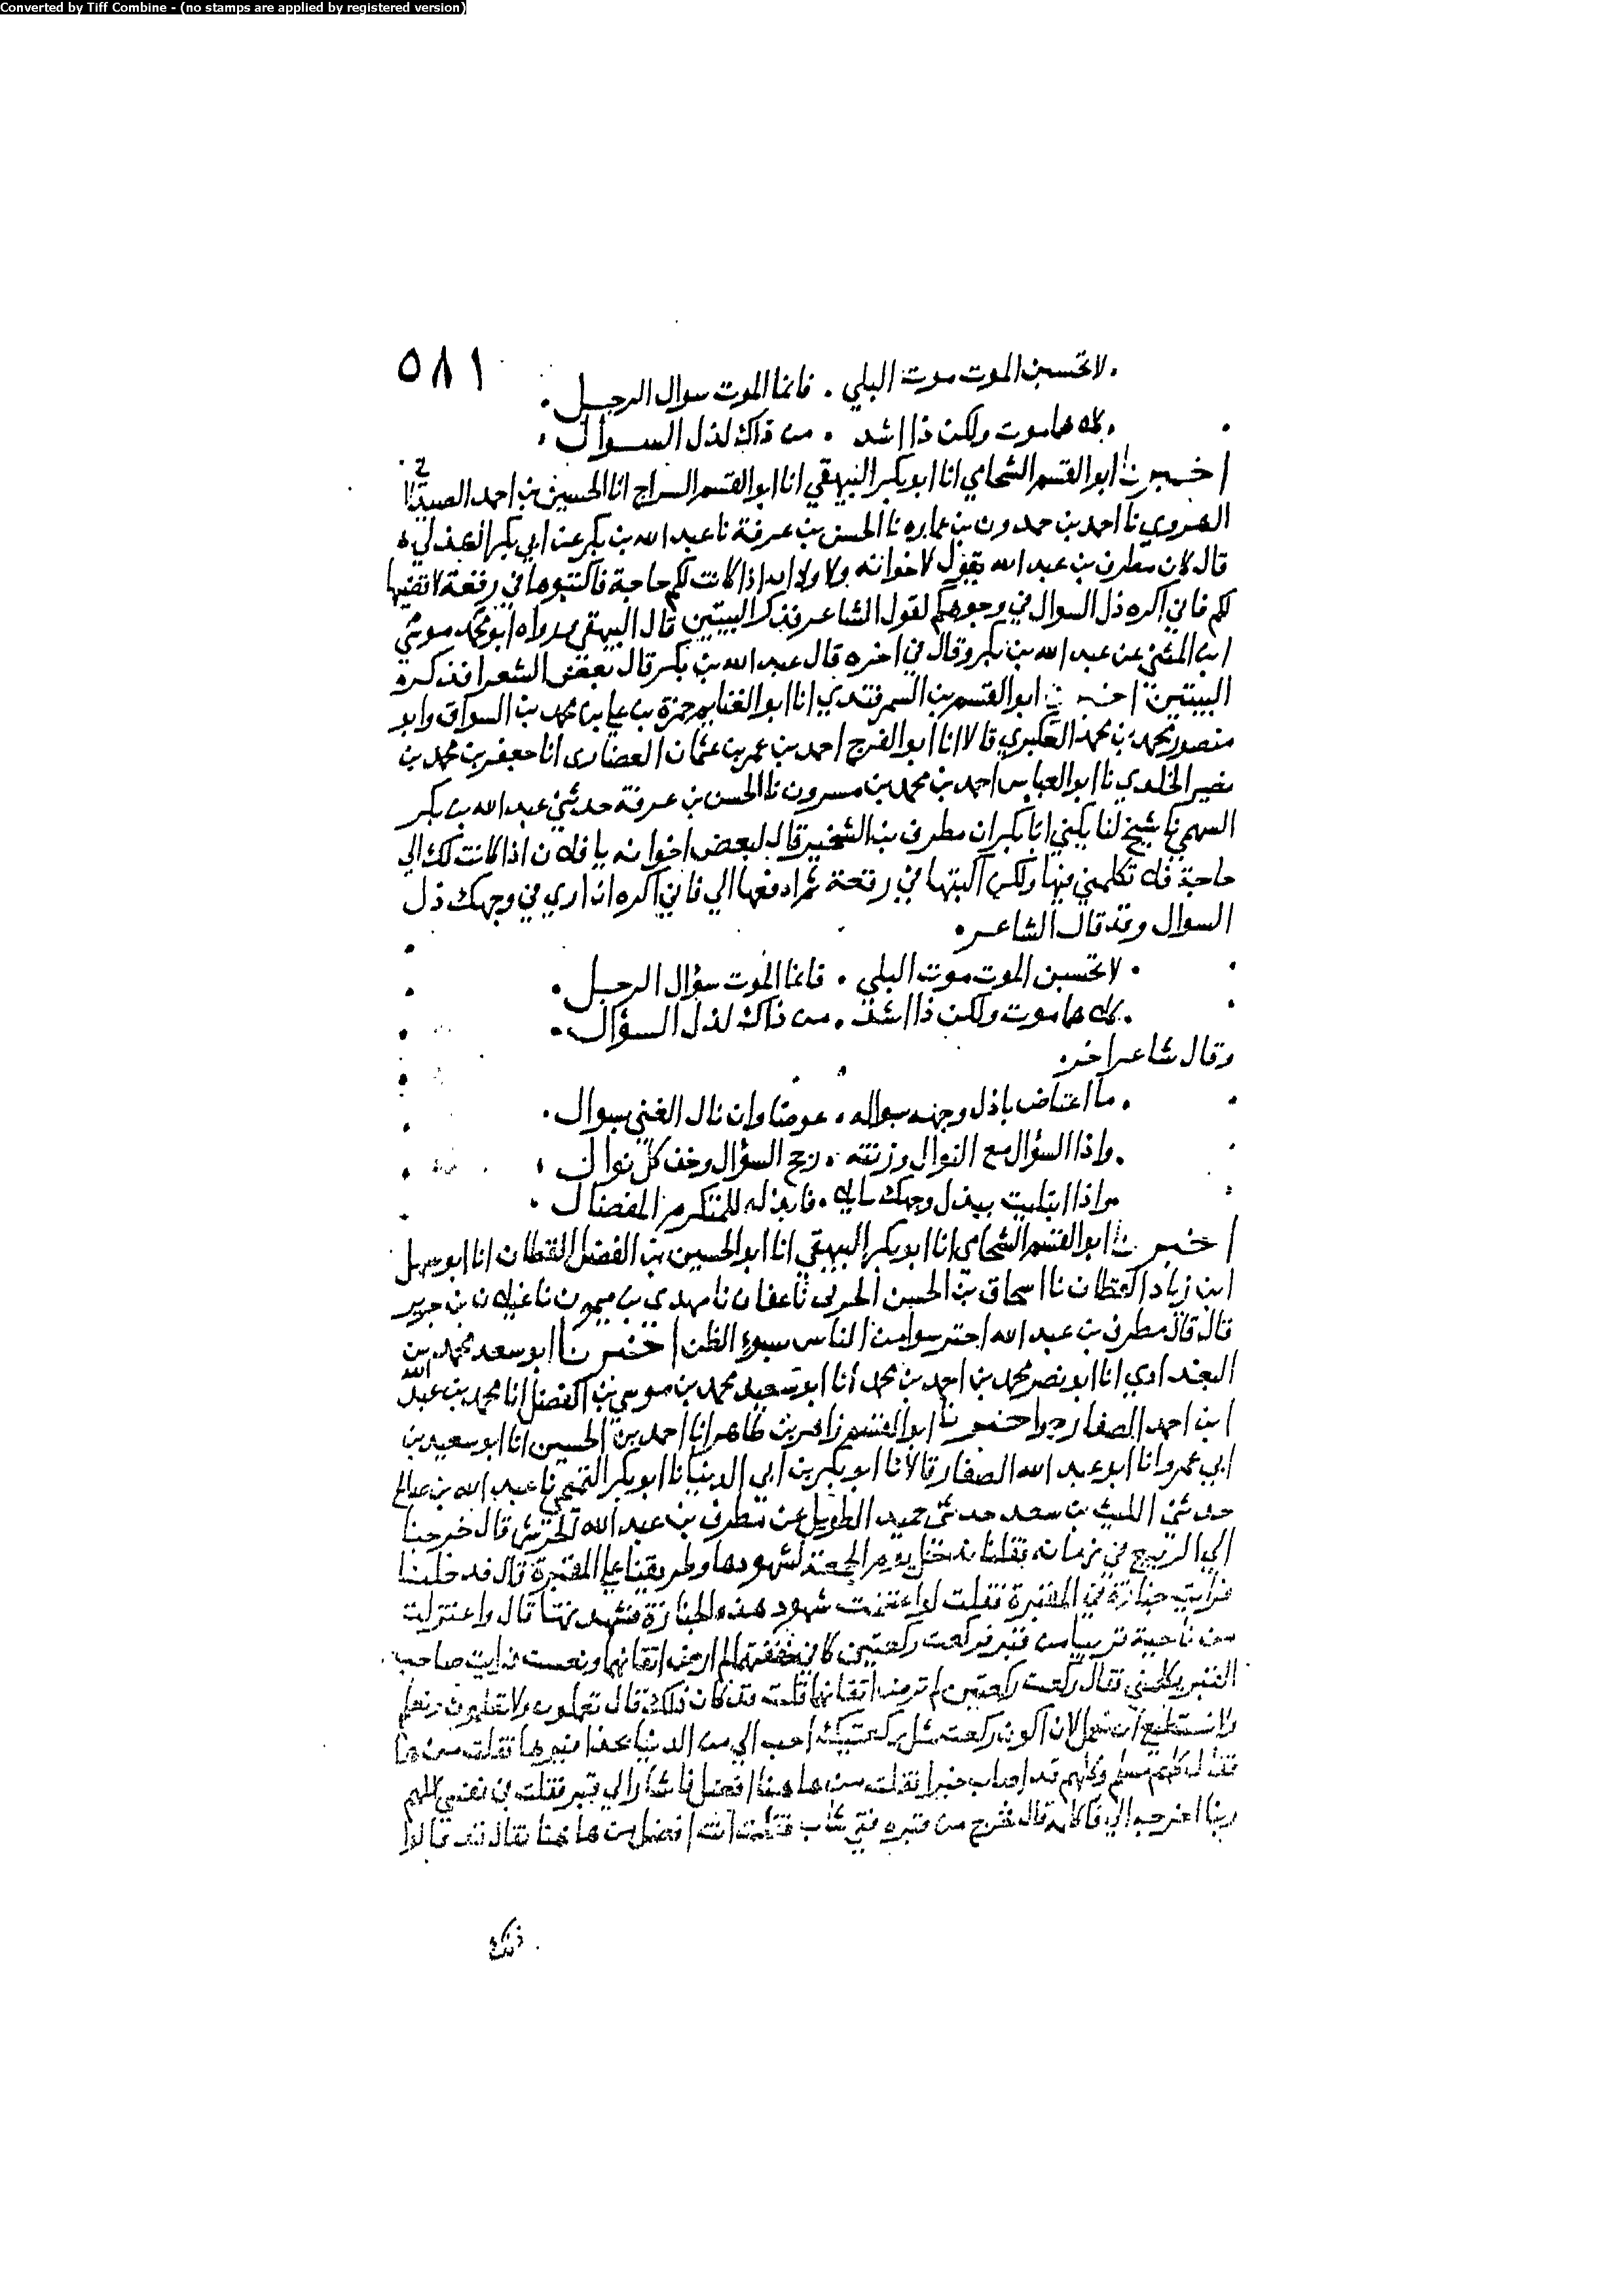 Converted by Tiff Combine - (no stamps are applied by registered version)
٥٨١
لا تحسبن الموت موت البلي . فانما الموت سوال الرجل .
كلاهما موت ولكن ذا اشد . من ذاك لذل السوال .
اخبرنا ابو القسم الشحامي انا ابو بكر البيهقي انا ابو القسم السراج انا الحسين بن احمد
الهروي نا احمد بن حمدون بن عماره نا الحسن بن عرفة نا عبد الله بن بكر عن ابي بكر الهذلي
قال كان مطرف بن عبد الله يقول لاخوانه اذا كانت لكم حاجة فاكتبوها في رقعة لاقضيها
لكم فاني اكره ذل السوال في وجوهكم لقول الشاعر فذكر البيتين قال البيهقي ورواه ابو محمد موسي
ابن المثني عن عبد الله بن بكر وقال في اخره قال عبد الله بن بكر قال بعض الشعرا فذكره
البيتين اخبرنا ابو القسم بن السمرقندي انا ابو الغنايم حمزة بن علي بن محمد بن السواق وابو
منصور محمد بن محمد العكبري قالا انا ابو الفرج احمد بن عمر بن عثمان العضاري انا جعفر بن محمد بن
نصير الخلدي نا ابو العباس احمد بن محمد بن مسروق نا الحسن بن عرفة حدثني عبد الله بن بكر
السهمي نا شيخ لنا يكني ابا بكر ان مطرف بن الشخير قال لبعض اخوانه يا فلان اذا كانت لك الي
حاجة فلا تكلمني فيها ولكن اكتبها في رقعة ثم ادفعها الي فاني اكره ان اري في وجهك ذل
السوال وقد قال الشاعر .
. لا تحسبن الموت موت البلي . فانما الموت سؤال الرجل .
. كلاهما موت ولكن ذا اشد . من ذاك لذل السؤال .
وقال شاعر اخر .
. ما اعتاض باذل وجهه بسواله . عوضا وان نال الغني بسوال .
. واذا السؤال مع النوال وزنته . رجح السؤال وخف كل نوال .
واذا ابتليت ببذل وجهك سايلا . فابذله للمتكرم المفضال .
اخبرنا ابو القسم الشحامي انا ابو بكر البيهقي انا ابو الحسين بن الفضل القطان انا ابو سهل
ابن زياد القطان نا اسحاق بن الحسن الحربي نا عفان نا مهدي بن ميمون نا غيلان بن جرير
قال قال مطرف بن عبد الله احترسوا من الناس بسوء الظن اخبرنا ابو سعد محمد بن
البغدادي انا ابو نصر محمد بن احمد بن محمد انا ابو سعيد محمد بن موسي بن الفضل انا محمد بن عبد الله
ابن احمد الصفار واخبرنا ابو القسم زاهر بن طاهر انا احمد بن الحسين انا ابو سعيد بن
ابي عمرو انا ابو عبد الله الصفار قالا نا ابو بكر بن ابي الدنيا نا ابو بكر التميمي نا عبد الله بن صالح
حدثني الليث بن سعد حدثني حميد الطويل عن مطرف بن عبد الله الحرشي قال خرجنا
الي الربيع في زمانه فقلنا ندخل يوم الجمعة لشهودها وطريقنا علي المقبرة قال فدخلنا
فرايت جنازة في المقبرة فقلت لو اغتنمت شهود هذه الجنازة فشهدتها قال واعتزلت
من ناحية قريبا من قبر فركعت ركعتين كاني خففتهما لم ارض اتقانهما ونعست فرايت صاحب
القبر يكلمني فقال ركعت ركعتين لم ترض اتقانهما قلت قد كان ذلك قال تعملون ولا تعلمون ونعلم
ولا نستطيع ان نعمل لان اكون ركعت مثل ركعتيك احب الي من الدنيا بحذافيرها فقلت من ها
فقال كلهم مسلم وكلهم قد اصاب خيرا فقلت من هاهنا افضل فاشار الي قبر فقلت في نفسي اللهم
ربنا اخرجه الي فاكلمه قال فخرج من قبره فتي شاب فقلت انت افضل من هاهنا فقال قد قالوا
ذلك